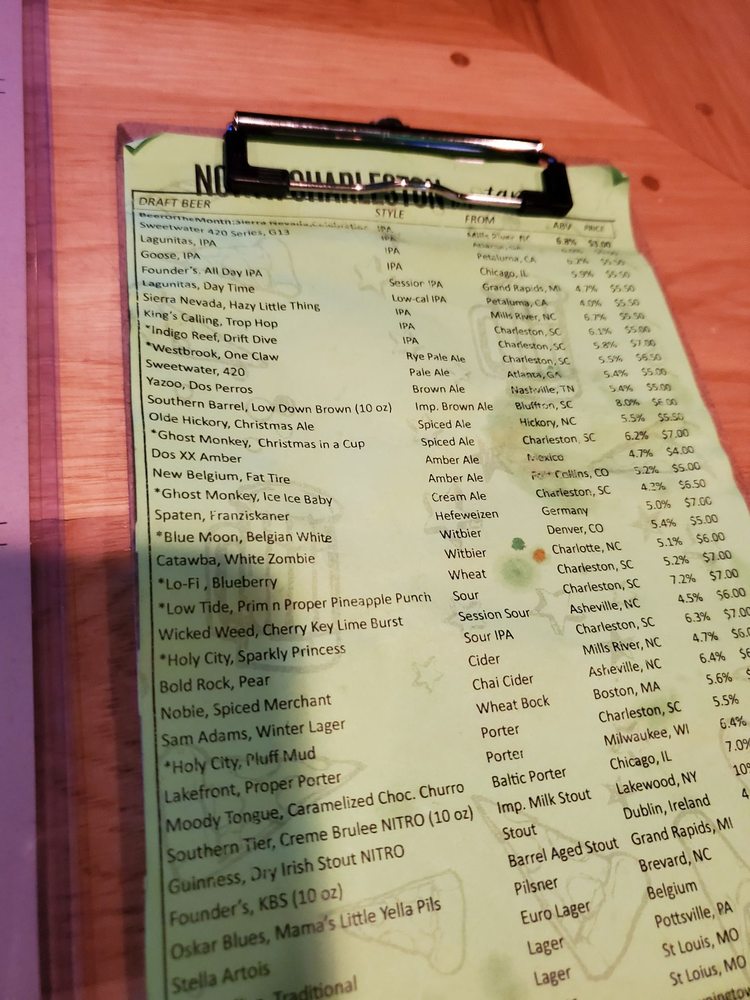 CHARLESTON
DRAFT BEER STYLE FROM ABV PRICE
BeerOfTheMonth:Sierra Nevada,Celebration IPA Mills River, NC 6.8% $3.00
Sweetwater 420 Series, G13 IPA Atlanta, GA
Lagunitas, IPA IPA Petaluma, CA 6.2% $5.50
Goose, IPA IPA Chicago, IL 5.9% $5.50
Founder's, All Day IPA Session IPA Grand Rapids, MI 4.7% $5.50
Lagunitas, Day Time Low-cal IPA Petaluma, CA 4.0% $5.50
Sierra Nevada, Hazy Little Thing IPA Mills River, NC 6.7% $5.50
King's Calling, Trop Hop IPA Charleston, SC 6.1% $5.00
*Indigo Reef, Drift Dive IPA Charleston, SC 5.8% $7.00
*Westbrook, One Claw Rye Pale Ale Charleston, SC 5.5% $6.50
Sweetwater, 420 Pale Ale Atlanta, GA 5.4% $5.00
Yazoo, Dos Perros Brown Ale Nashville, TN 5.4% $5.00
Southern Barrel, Low Down Brown (10 oz) Imp. Brown Ale Bluffton, SC 8.0% $6.00
Olde Hickory, Christmas Ale Spiced Ale Hickory, NC 5.5% $5.50
*Ghost Monkey, Christmas in a Cup Spiced Ale Charleston, SC 6.2% $7.00
Dos XX Amber Amber Ale Mexico 4.7% $4.00
New Belgium, Fat Tire Amber Ale Fort Collins, CO 5.2% $5.00
*Ghost Monkey, Ice Ice Baby Cream Ale Charleston, SC 4.2% $6.50
Spaten, Franziskaner Hefeweizen Germany 5.0% $7.00
*Blue Moon, Belgian White Witbier Denver, CO 5.4% $5.00
Catawba, White Zombie Witbier Charlotte, NC 5.1% $6.00
*Lo-Fi , Blueberry Wheat Charleston, SC 5.2% $7.00
*Low Tide, Prim n Proper Pineapple Punch Sour Charleston, SC 7.2% $7.00
Wicked Weed, Cherry Key Lime Burst Session Sour Asheville, NC 4.5% $6.00
*Holy City, Sparkly Princess Sour IPA Charleston, SC 6.3% $7.0
Bold Rock, Pear Cider Mills River, NC 4.7% $6.
Noble, Spiced Merchant Chai Cider Asheville, NC 6.4%
Sam Adams, Winter Lager Wheat Bock Boston, MA 5.6%
*Holy City, Pluff Mud Porter Charleston, SC 5.5%
Lakefront, Proper Porter Porter Milwaukee, WI 6.4%
Moody Tongue, Caramelized Choc. Churro Baltic Porter Chicago, IL 7.0%
Southern Tier, Creme Brulee NITRO (10 oz) Imp. Milk Stout Lakewood, NY 10%
Guinness, Dry Irish Stout NITRO Stout Dublin, Ireland 4
Founder's, KBS (10 oz) Barrel Aged Stout Grand Rapids, MI
Oskar Blues, Mama's Little Yella Pils Pilsner Brevard, NC
Stella Artois Euro Lager Belgium
Traditional Lager Pottsville, PA
Lager St Louis, MO
St Loius, MO